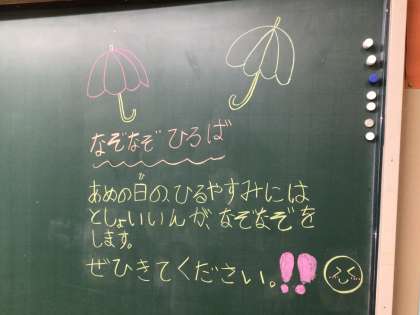 なぞなぞ ひろば
あめの日の、ひるやすみには
としょいいんが、なぞなぞを
します。
ぜひきてください。!!